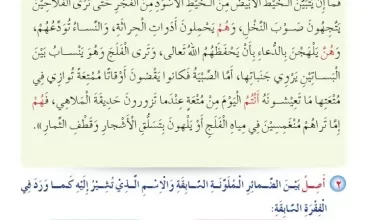 فما إن يتبين الخيط الأبيض من الخيط الأسود من الفجر حتى ترى الفلاحين
يتجهون صوب النخل، وهم يحملون أدوات الحراثة، والنساء تودعهم،
وهن يلهجن بالدعاء بأن يحفظهم الله تعالى، وترى الفلج وهو ينساب بين
البساتين يروي جنباتها، أما الصبية فكانوا يقضون أوقاتا ممتعة توازي في
متعتها ما تعيشونه أنتم اليوم من متعة عندما تزورون حديقة الملاهي، فهم
إما تراهم منغمسين في مياه الفلج أو يلهون بتسلق الأشجار وقطف الثمار».
٢ أصل بين الضمائر الملونة السابقة والاسم الذي تشير إليه كما ورد في
الفقرة السابقة: